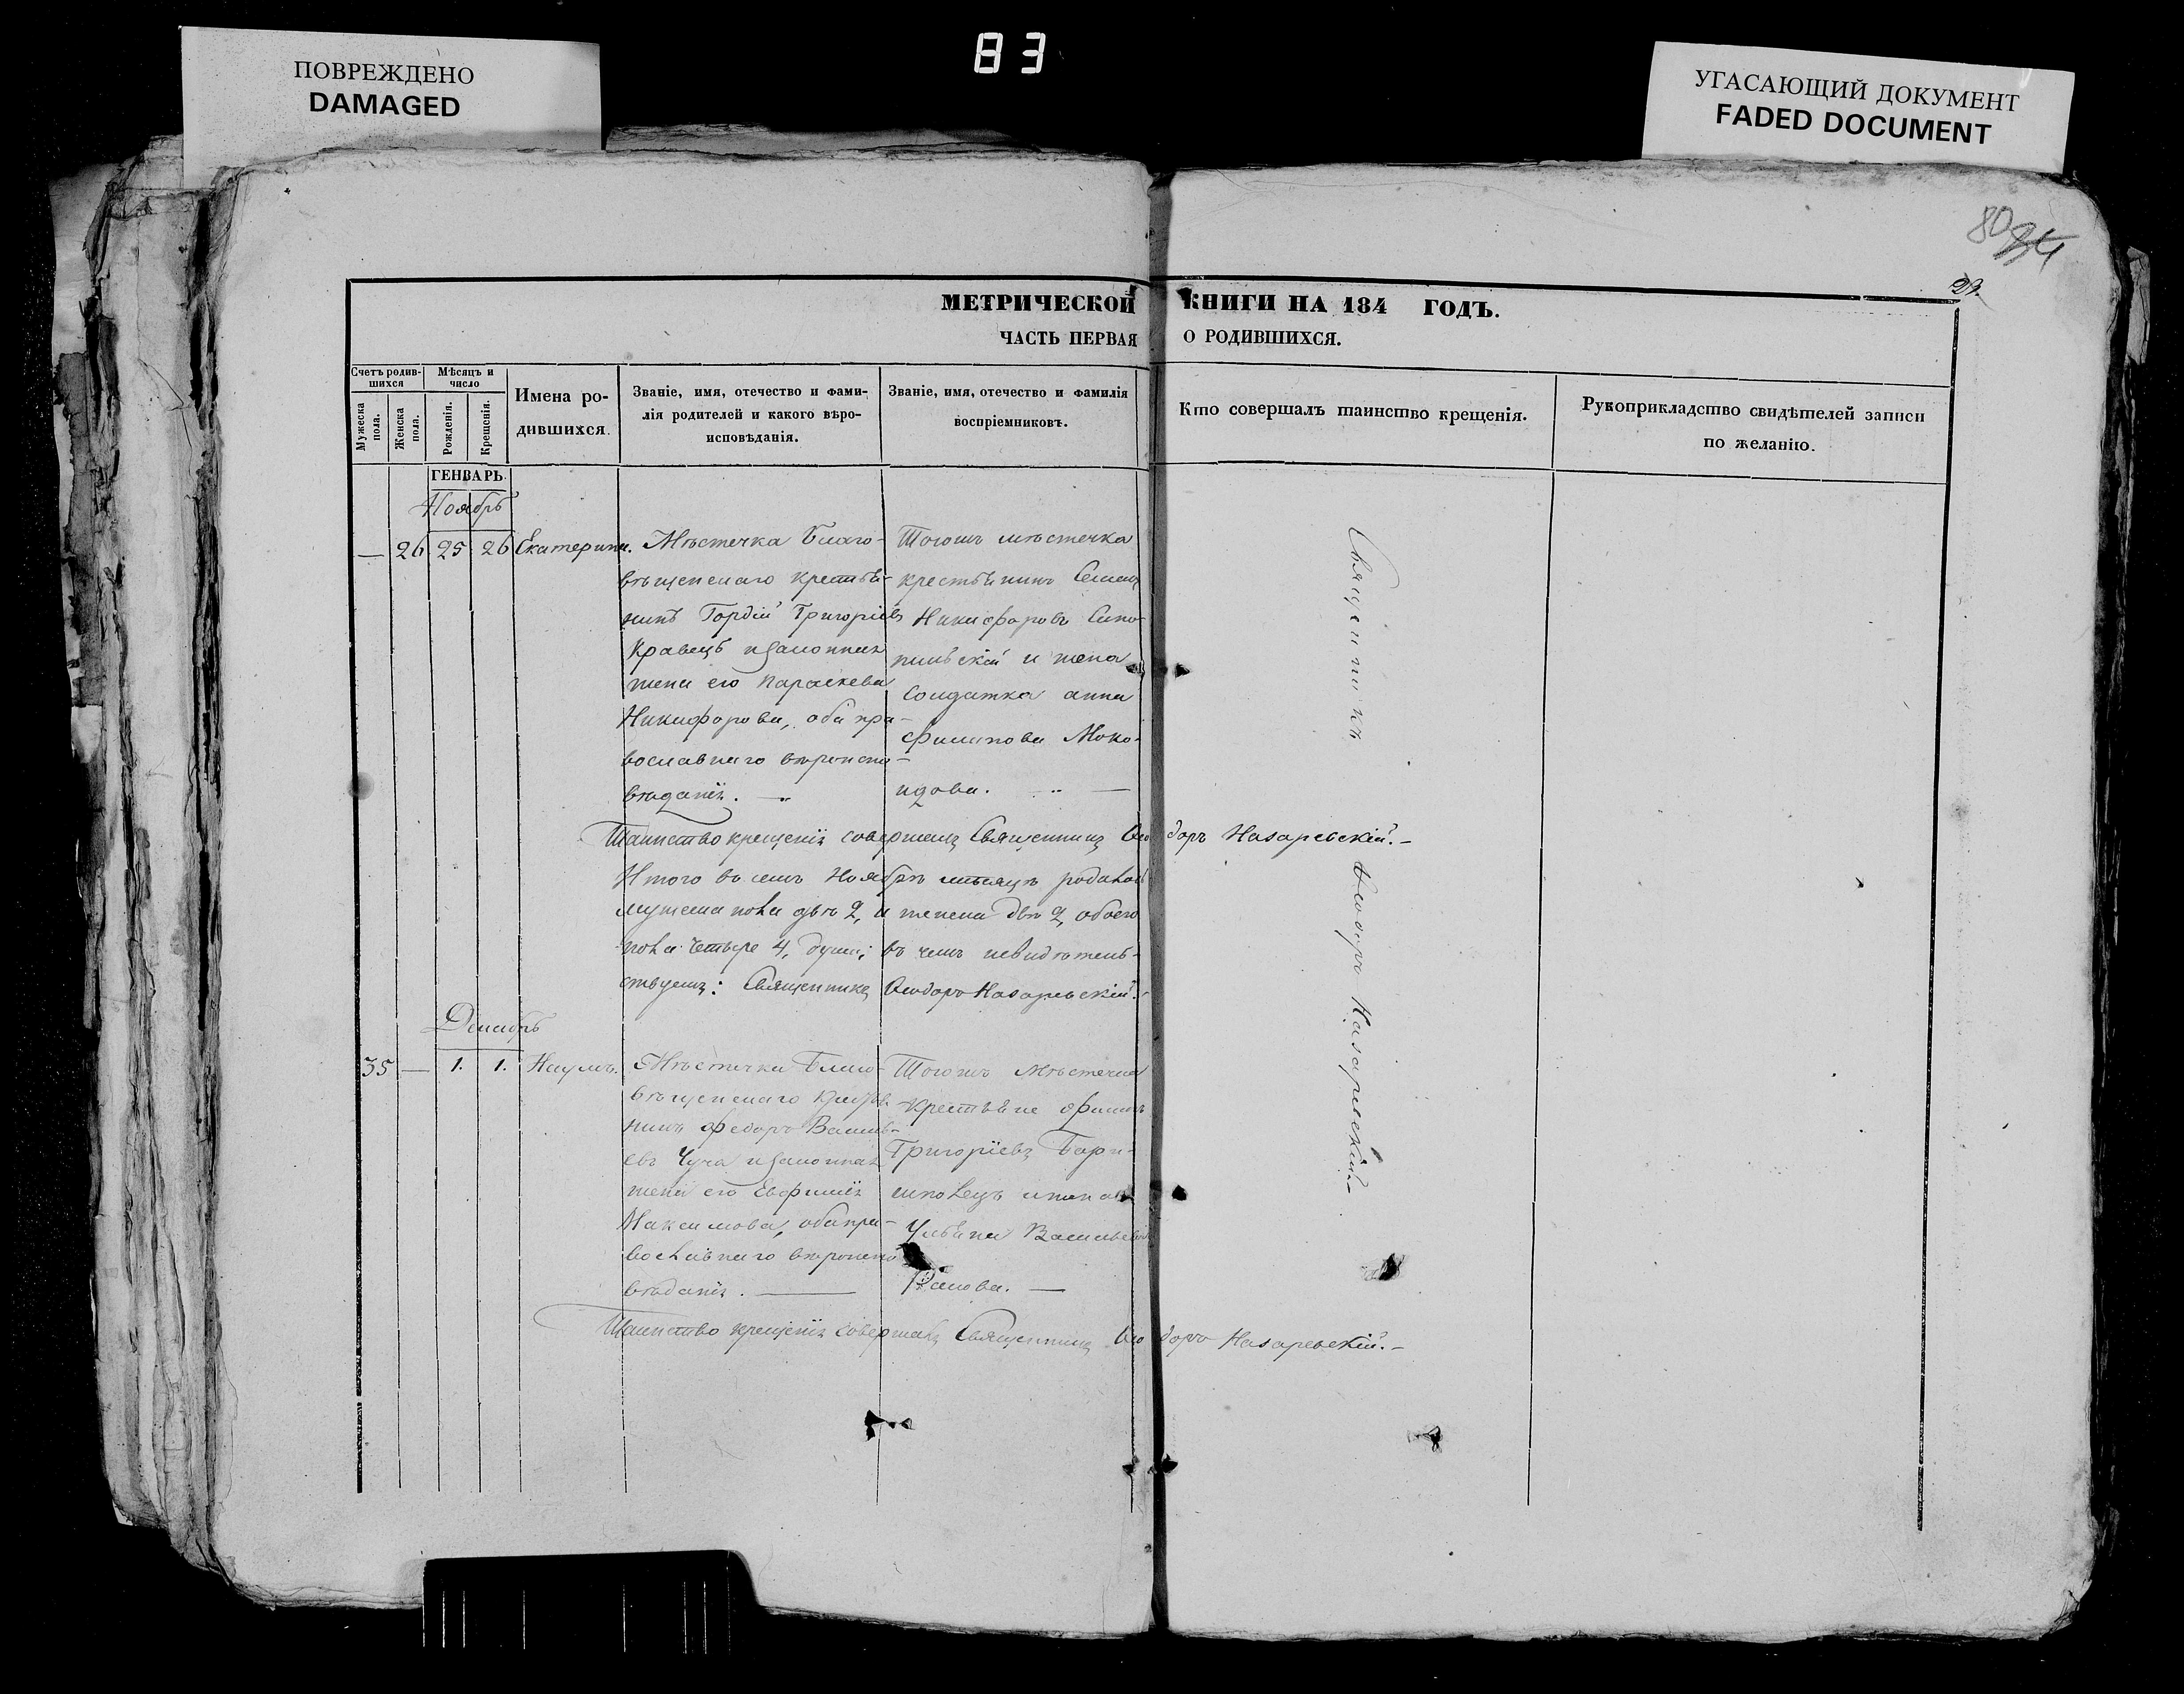 ПОВРЕЖДЕНО
DAMAGED
83
УГАСАЮЩИЙ ДОКУМЕНТ
FADED DOCUMENT
80 84
29.
МЕТРИЧЕСКОЙ КНИГИ НА 184 ГОДЪ.
ЧАСТЬ ПЕРВАЯ О РОДИВШИХСЯ.
Счетъ родив-
шихся
Мужеска пола.
Женска пола.
Мѣсяцъ и
число
Рожденія.
Крещенія.
Имена ро-
дившихся.
Званіе, имя, отечество и фами-
лія родителей и какого вѣро-
исповѣданія.
Званіе, имя, отечество и фамилія
воспріемниковъ.
Кто совершалъ таинство крещенія.
Рукоприкладство свидѣтелей записи
по желанію.
ГЕНВАРЬ.
Ноябрь
— 26 25 26 Екатерина.
Мѣстечка Благо-
вѣщенскаго крестья-
нинъ Гордій Григоріевъ
Кравецъ и законная
жена его Параскева
Никифорова, оба пра-
вославнаго вѣроиспо-
вѣданія. —
Тогожъ мѣстечка
крестьянинъ Семенъ
Никифоровъ
и жена
Солдатка анна
Филипова
Таинство крещенія совершилъ Священникъ Ѳеодоръ Назаревскій. —
Итого въ семъ Ноябрѣ мѣсяцѣ родилось
мужеска пола двѣ 2, и женска двѣ 2, обоего
пола четыре 4, души; въ чемъ
Священникъ Ѳеодоръ Назаревскій. —
Декабрь
35 — 1. 1. Наумъ.
Мѣстечка Благо-
вѣщенскаго крестья-
нинъ Федоръ Василь-
евъ Чуча и законная
жена его Евфимія
Максимова, оба пра-
вославнаго вѣроиспо-
вѣданія. —
Тогожъ Мѣстечка
крестьяне
Григоріевъ
Ульяна Васильева
Таинство крещенія совершалъ Священникъ Ѳеодоръ Назаревскій. —
Священникъ Ѳеодоръ Назаревскій. —